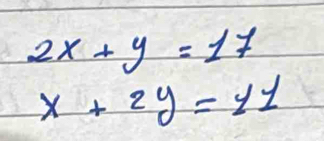 2x + y = 17
x + 2y = 11